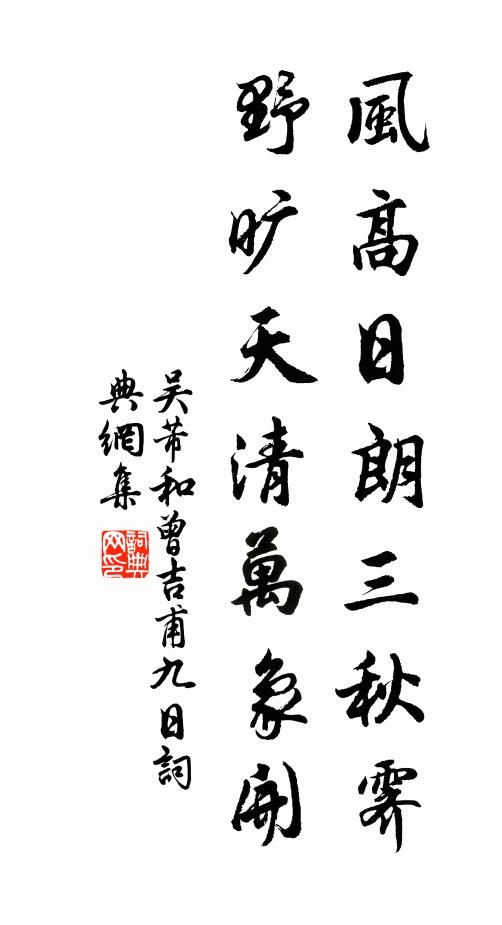 風高日朗三秋霽
野旷天清萬象開
吴芾和曾吉甫九日詞
典網集
詞典
网印